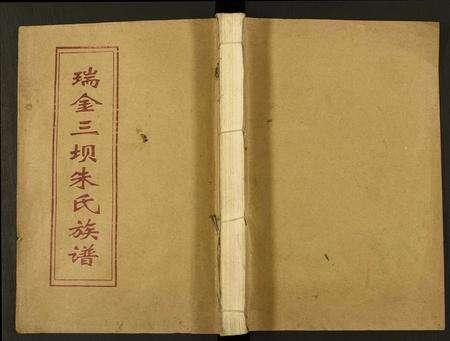 瑞金三坝朱氏族谱